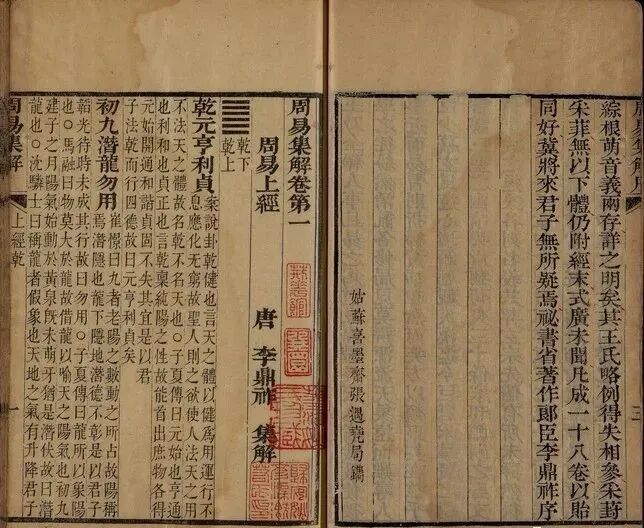 綜根萌音義兩存詳之明矣其王氏略例得失相參采葑
采菲無以下體仍附經末式廣未聞凡成一十八卷以貽
同好冀將來君子無所疑焉祕書省著作郎臣李鼎祚序
姑蘇喜墨齋張遇堯局鐫
周易集解卷第一
周易上經 唐 李鼎祚 集解
乾下
乾上
乾元亨利貞 案說卦乾健也言天之體以健為用運行不
息應化无窮故聖人則之欲使人法天之用
不法天之體故名乾不名天也○子夏傳曰元始也亨通
也利和也貞正也言乾稟純陽之性故能首出庶物各得
元始開通和諧貞固不失其宜是以君
子法乾而行四德故曰元亨利貞矣
初九潛龍勿用 崔憬曰九者老陽之數動之所占故陽稱
焉潛隱也龍下隱地潛德不彰是以君子
韜光待時未成其行故曰勿用○子夏傳曰龍所以象陽
也○馬融曰物莫大於龍故借龍以喻天之陽氣也初九
建子之月陽氣始動於黃泉既未萌牙猶是潛伏故曰潛
龍也○沈驎士曰稱龍者假象也天地之氣有升降君子
周易集解 上經乾 一